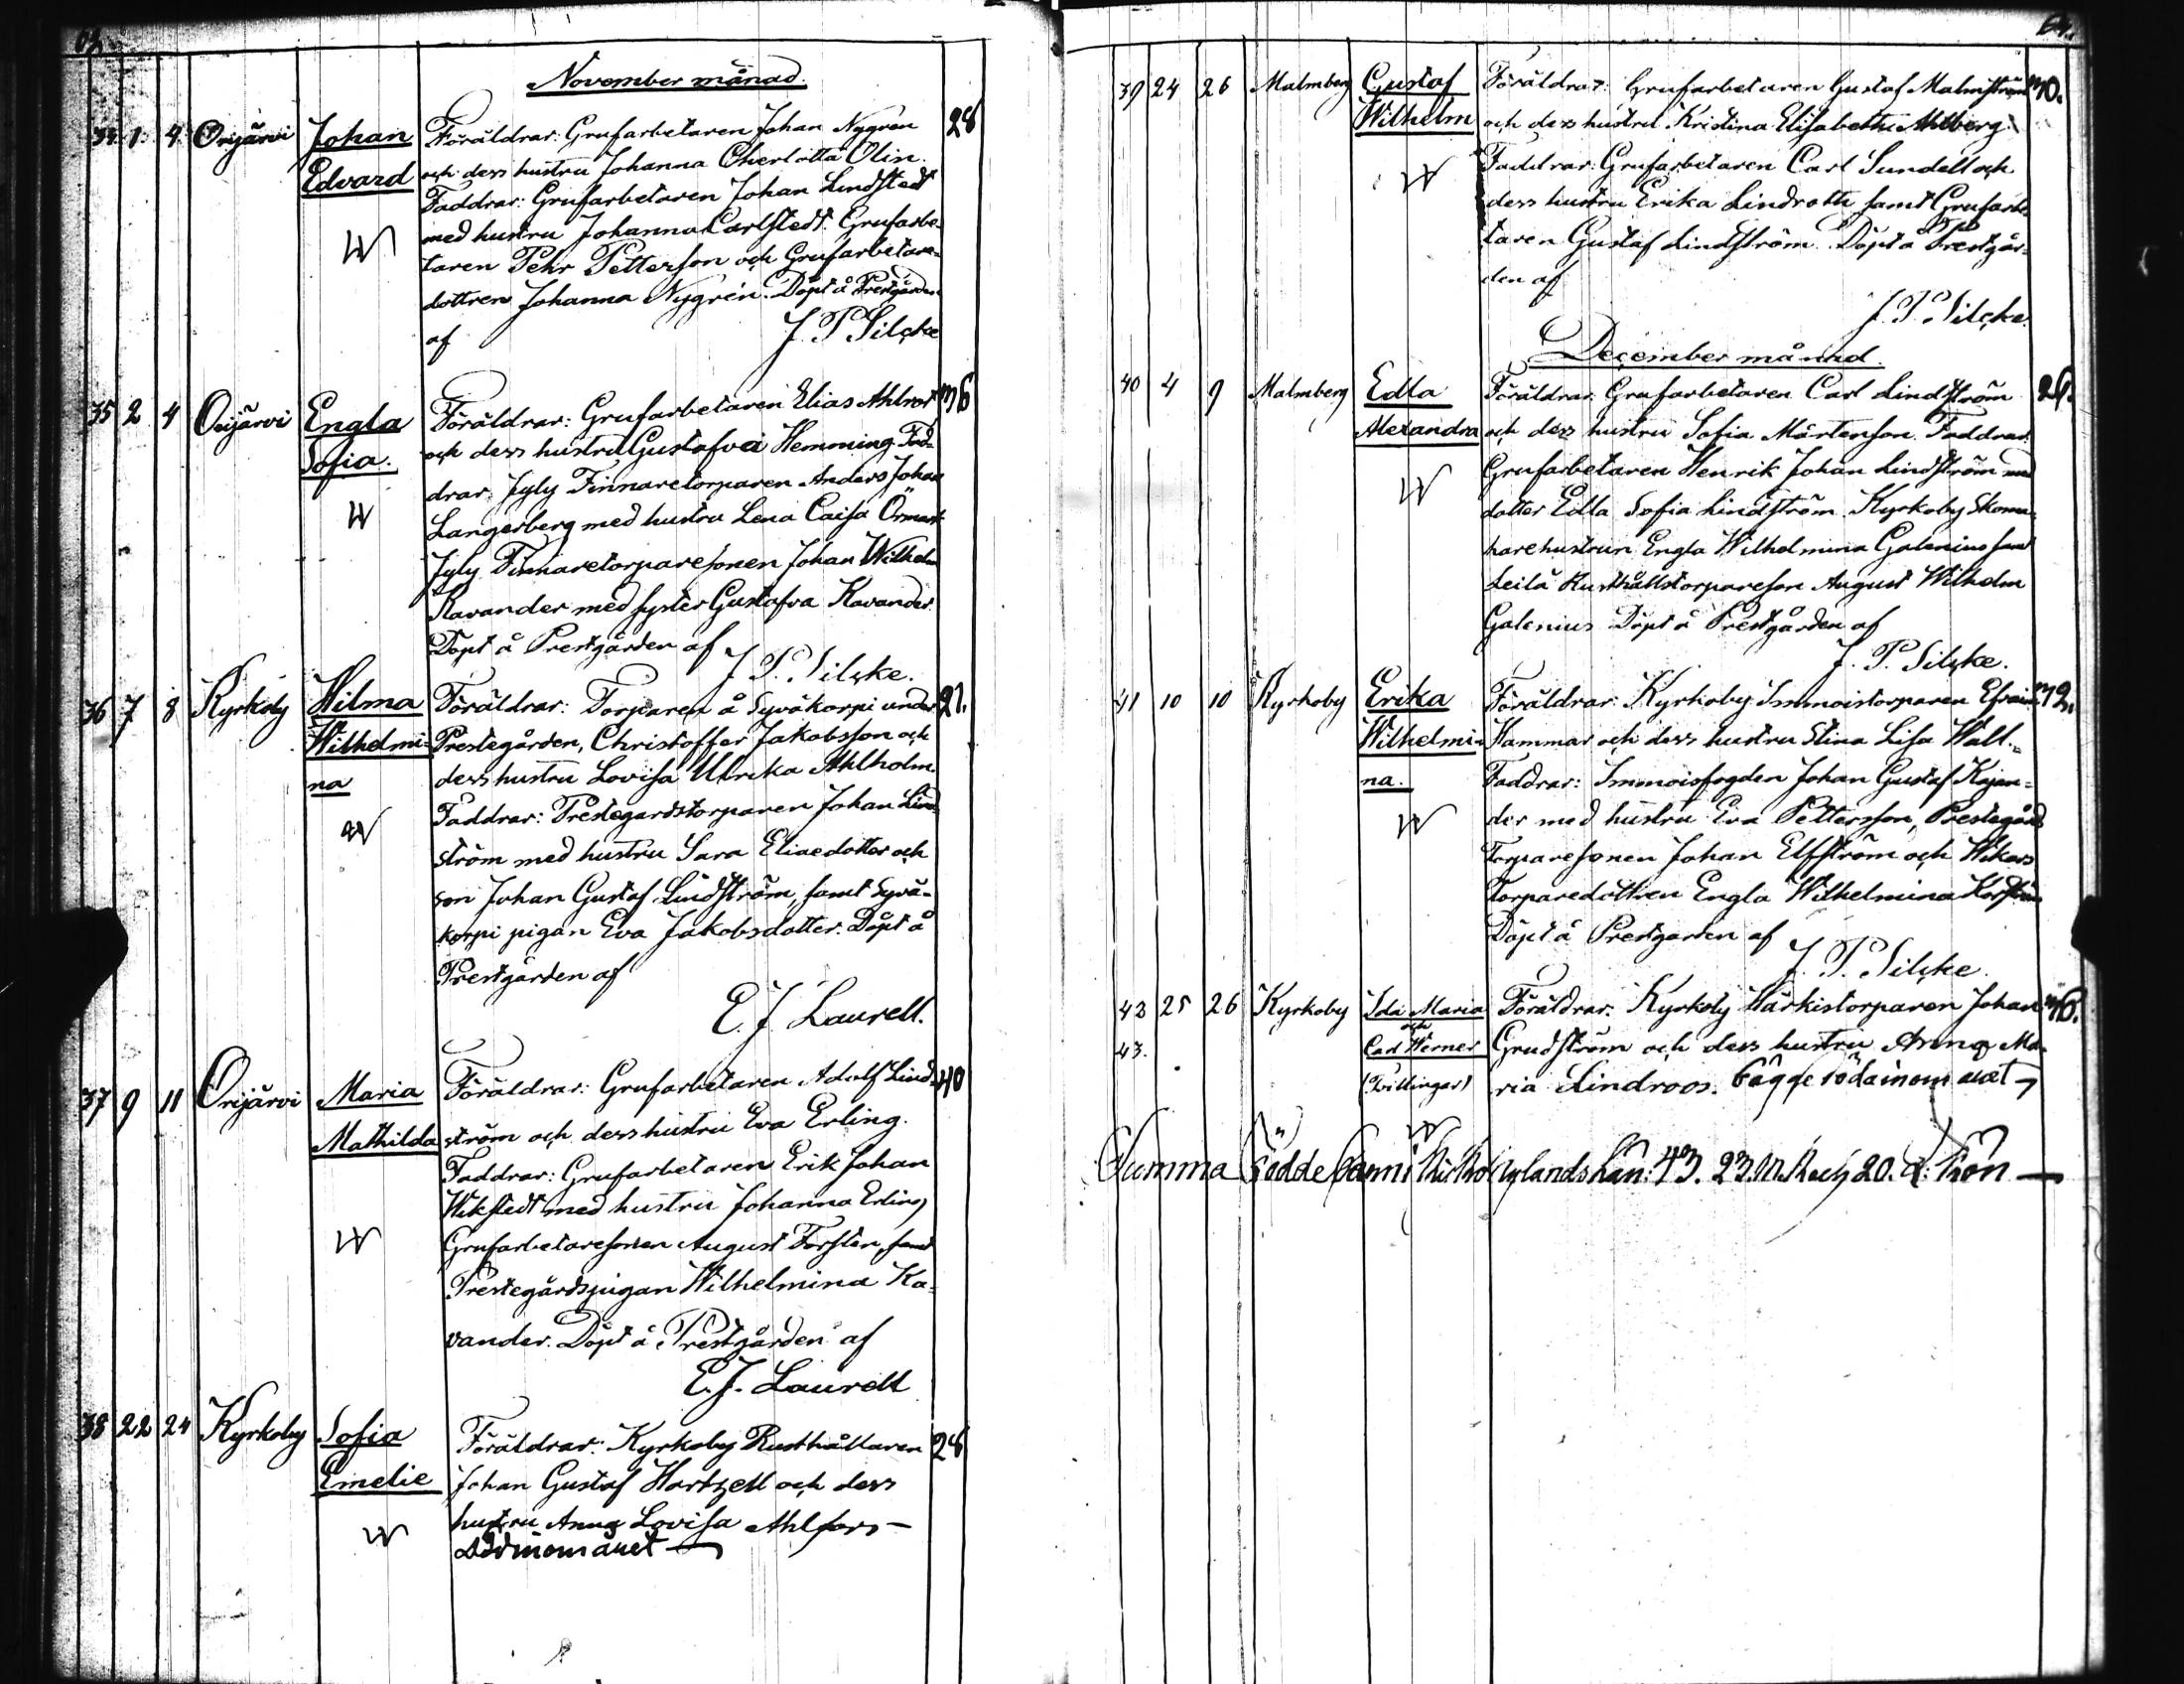 November månad.
34. 1. 4. Orijärvi Johan Föräldrar: Grufarbetaren Johan Nygrén 28
Edvard och dess hustru Johanna Cherlotta Olin.
Faddrar: Grufarbetaren Johan Lindstedt
med hustru Johanna Carlstedt. Grufarbe-
taren Pehr Petterson och Grufarbetare-
dottren Johanna Nygrén. Döpt å Prestgården
af J. P. Silcke
35 2 4 Orijärvi Engla Föräldrar: Grufarbetaren Elias Ahlrot 36
Sofia. och dess hustru Gustafva Hemming. Fad-
drar: Jyly Finnaretorparen Anders Johan
Langerberg med hustru Lena Caisa Örmark
Jyly Finnaretorparesonen Johan Wilhelm
Kavander med syster Gustafva Kavander.
Döpt å Prestgården af J. P. Silcke.
36 7 8 Kyrkoby Hilma Föräldrar: Torparen å Syväkorpi under 21.
Wilhelmi- Prestegården, Christoffer Jakobsson och
na dess hustru Lovisa Ulrika Ahlholm.
Faddrar: Prestegardstorparen Johan Lind-
ström med hustru Sara Eliaedotter och
son Johan Gustaf Lindström, samt Syvä-
korpi pigan Eva Jakobsdotter. Döpt å
Prestgården af
E. J. Laurell.
37 9 11 Orijärvi Maria Föräldrar: Grufarbetaren Adolf Lind- 40
Mathilda ström och dess hustru Eva Erling.
Faddrar: Grufarbetaren Erik Johan
Wikstedt med hustru Johanna Erling
Grufarbetaresonen August Forstén, samt
Prestegårdspigan Wilhelmina Ka-
vander. Döpt å Prestgården af
E. J. Laurell
38 22 24 Kyrkoby Sofia Föräldrar: Kyrkoby Rusthållaren 28
Emelie Johan Gustaf Hartzell och dess
hustru Anna Lovisa Ahlfors —
Död inom året —
64.
39 24 26 Malmberg Gustaf Föräldrar: Grufarbetaren Gustaf Malmström 30.
Wilhelm och dess hustru Kristina Elisabeth Ahlberg.
Faddrar: Grufarbetaren Carl Sundell och
dess hustru Erika Lindroth samt Grufarbe-
taren Gustaf Lindström. Döpt å Prestgår-
den af
J. P. Silcke.
December månad.
40 4 9 Malmberg Edla Föräldrar: Grufarbetaren Carl Lindström
Alexandra och dess hustru Sofia Mårtenson. Faddrar:
Grufarbetaren Henrik Johan Lindström med
dotter Edla Sofia Lindström. Kyrkoby Skoma-
karehustrun Engla Wilhelmina Galenius samt
Leilä Rusthållstorpareson August Wilhelm
Galenius Döpt å Prestgården af
J. P. Silcke.
41 10 10 Kyrkoby Erika Föräldrar: Kyrkoby Immoistorparen Efraim 32.
Wilhelmi- Hammar och dess hustru Stina Lisa Wall.
na. Faddrar: Immoisfogden Johan Gustaf Kajan-
der med hustru Eva Pettersson, Prestegårds
Torparesonen Johan Elfström och
Torparedottren Engla Wilhelmina
Döpt å Prestgarden af
J. P. Silcke.
42 25 26 Kyrkoby Ida Maria Föräldrar: Kyrkoby Härkistorparen Johan
och
43. Carl Werner Grudström och dess hustru Anna Ma-
(Tvillingar) ria Lindroos. Bägge döda inom året
Summa Födde Barn i Nylands Län: 43. 23. M. K och 20. Q: Kön —